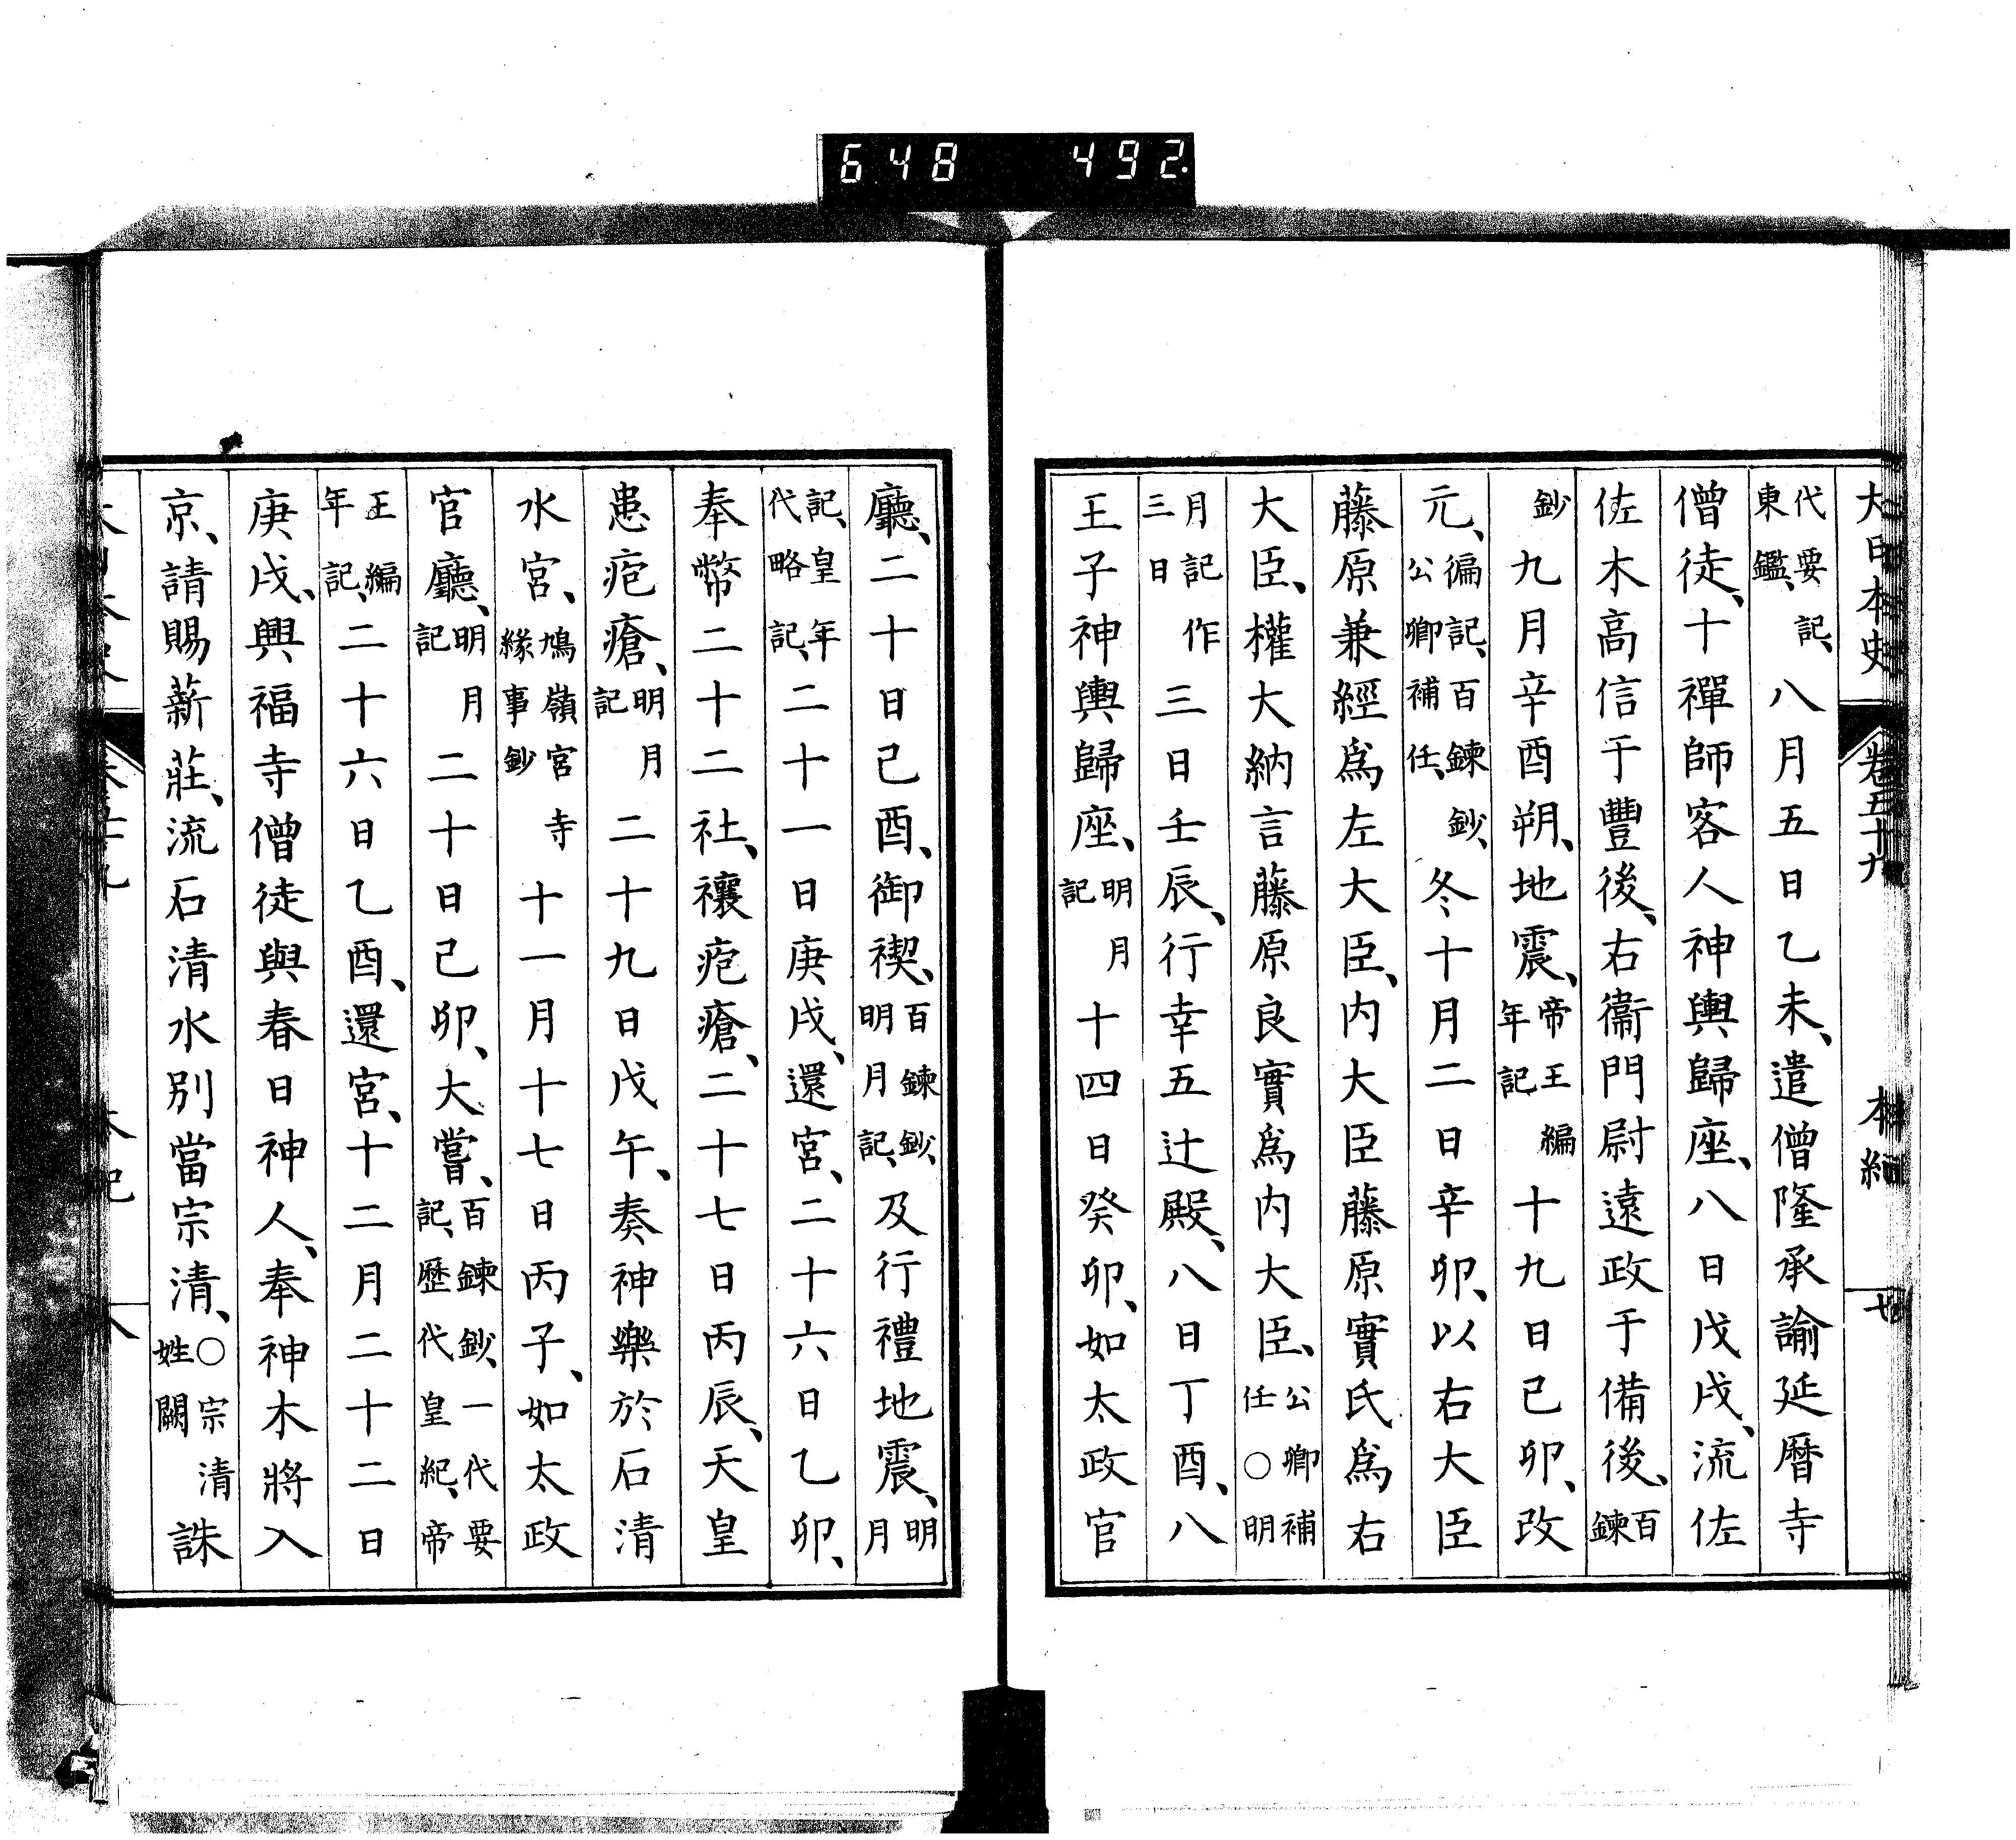 大日本史 卷五十九 本紀 七
代要記、東鑑、八月五日乙未、遣僧隆承諭延曆寺
僧徒、十禪師客人神輿歸座、八日戊戌、流佐
佐木高信于豐後、右衞門尉遠政于備後、百鍊
鈔九月辛酉朔、地震、帝王編年記十九日己卯、改
元、徧記、百鍊鈔、公卿補任、冬十月二日辛卯、以右大臣
藤原兼經爲左大臣、内大臣藤原實氏爲右
大臣、權大納言藤原良實爲内大臣、公卿補任○明
月記作三日三日壬辰、行幸五辻殿、八日丁酉、八
王子神輿歸座、明月記十四日癸卯、如太政官
廳、二十日己酉、御禊、百鍊鈔、明月記、及行禮地震、明月
記、皇年代略記、二十一日庚戌、還宮、二十六日乙卯、
奉幣二十二社、禳疱瘡、二十七日丙辰、天皇
患疱瘡、明月記二十九日戊午、奏神樂於石清
水宮、鳩嶺宮寺緣事鈔十一月十七日丙子、如太政
官廳、明月記二十日己卯、大嘗、百鍊鈔、一代要記、歷代皇紀、帝
王編年記、二十六日乙酉、還宮、十二月二十二日
庚戌、興福寺僧徒與春日神人、奉神木將入
京、請賜薪莊、流石清水別當宗清、○宗清姓闕誅
648 492.